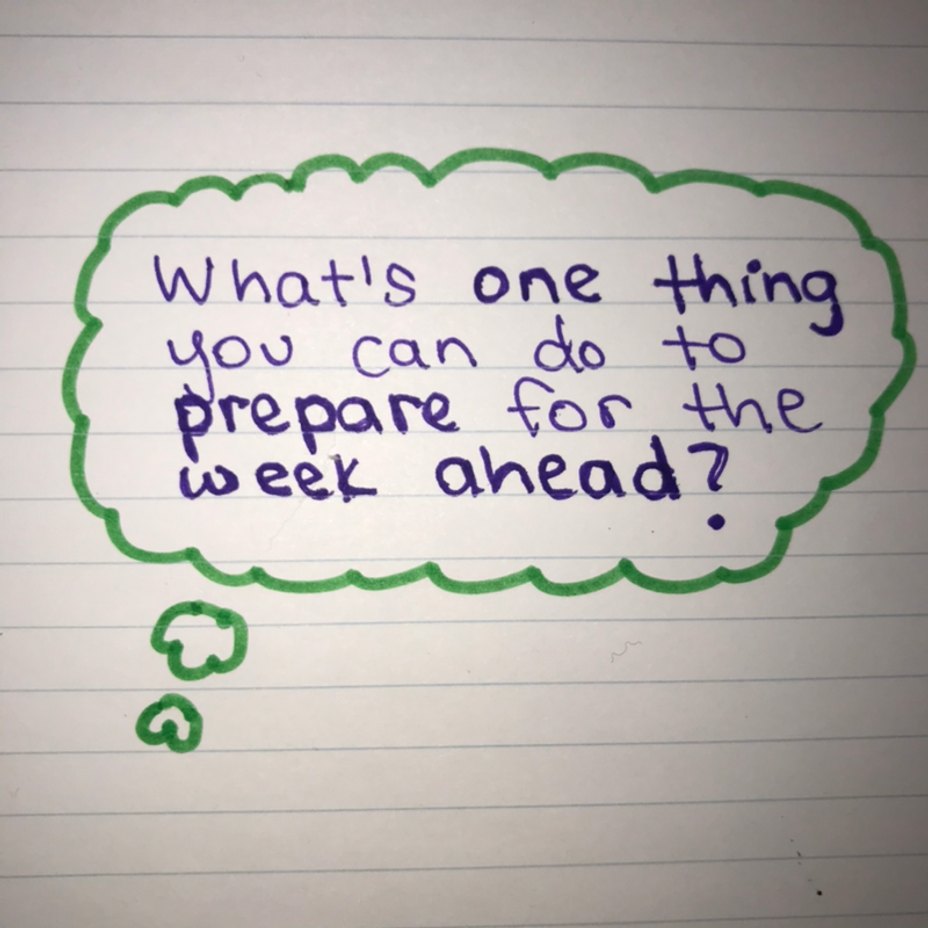 What's one thing
you can do to
prepare for the
week ahead?